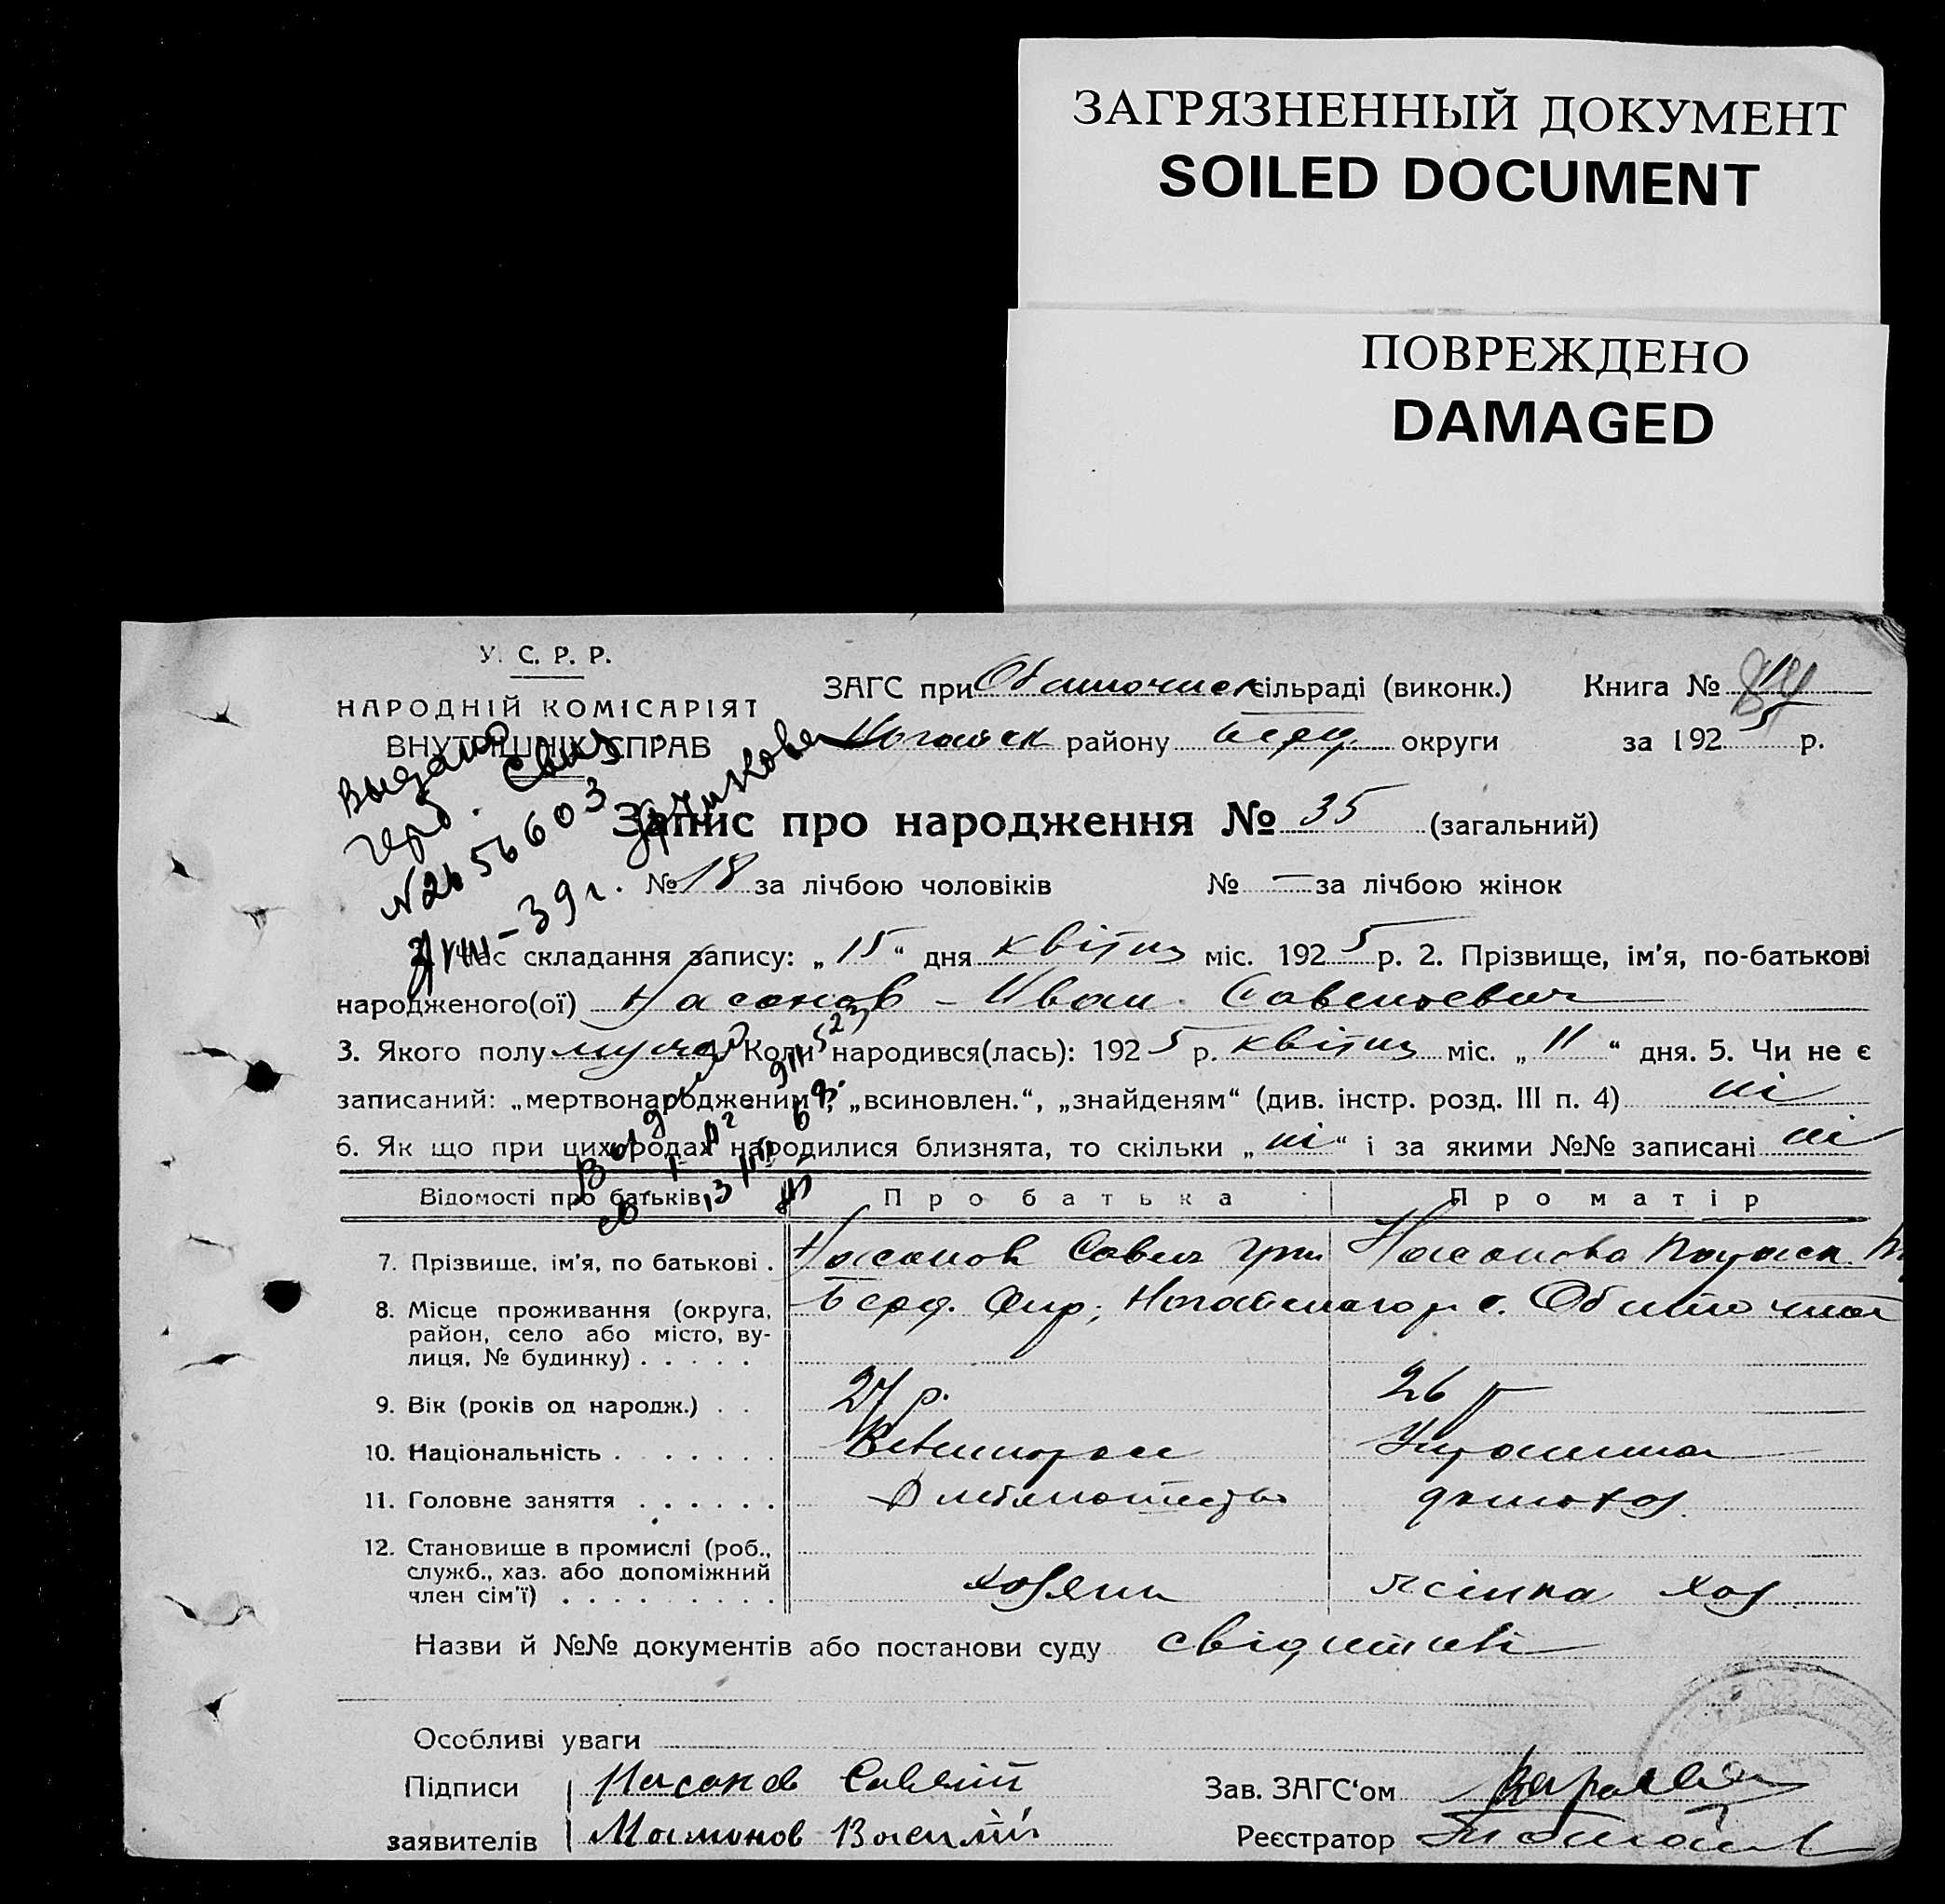 ЗАГРЯЗНЕННЫЙ ДОКУМЕНТ
SOILED DOCUMENT
ПОВРЕЖДЕНО
DAMAGED
У. С. Р. Р.
НАРОДНІЙ КОМІСАРІЯТ
ВНУТРІШНІХ СПРАВ
ЗАГС при Обиточнск сільраді (виконк.) Книга №
Ногайск району Берд. округи за 1925 р.
Выдано
герб. свид
Запис про народження № 35 (загальний)
№ 18 за лічбою чоловіків № — за лічбою жінок
Час складання запису: „15“ дня квітня міс. 1925 р. 2. Прізвище, ім'я, по-батькові
народженого(ої) Насонов - Иван Савельевич
3. Якого полу Коли народився(лась): 1925 р. квітня міс. „11“ дня. 5. Чи не є
записаний: „мертвонародженим“, „всиновлен.“, „знайденям“ (див. інстр. розд. III п. 4) ні
6. Як що при цих родах народилися близнята, то скільки „ні“ і за якими №№ записані ні
Відомості про батьків Про батька Про матір
7. Прізвище, ім'я, по батькові . Насонов Савел Гри Насонова
8. Місце проживання (округа, Берд. Окр; Ногайского р. с. Обиточная
район, село або місто, ву-
лиця, № будинку) . . . . .
9. Вік (років од народж.) . . 27 р. 26 р
10. Національність . . . . . . . Українка
11. Головне заняття . . . . . . домохоз.
12. Становище в промислі (роб.,
служб., хаз. або допоміжний
член сім'ї) . . . . . . . . . хозяин жінка хоз
Назви й №№ документів або постанови суду
Особливі уваги
Підписи Насонов Савелій Зав. ЗАГС'ом
заявителів Мамонов Василій Реєстратор